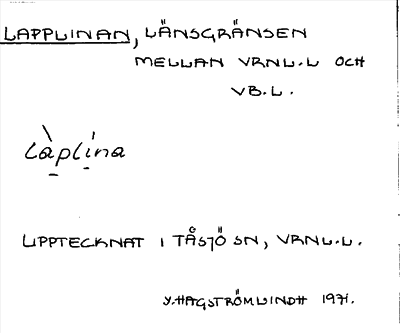 LAPPLINAN, LÄNSGRÄNSEN
MELLAN VRNL.L OCH
VB.L.
làplína
UPPTECKNAT I TÅSJÖ SN, VRNL.L.
Y.HAGSTRÖMLINDH 1971.